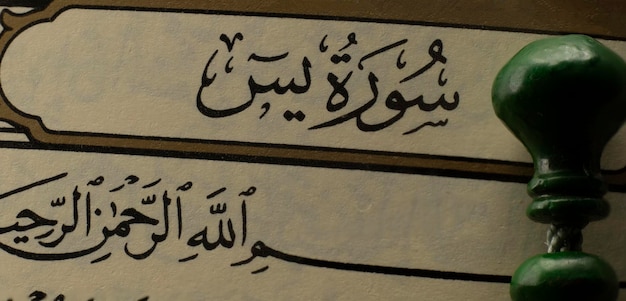 سُورَةُ يسٓ
ـمِ ٱللَّهِ ٱلرَّحْمَٰنِ ٱلرَّحِيـ